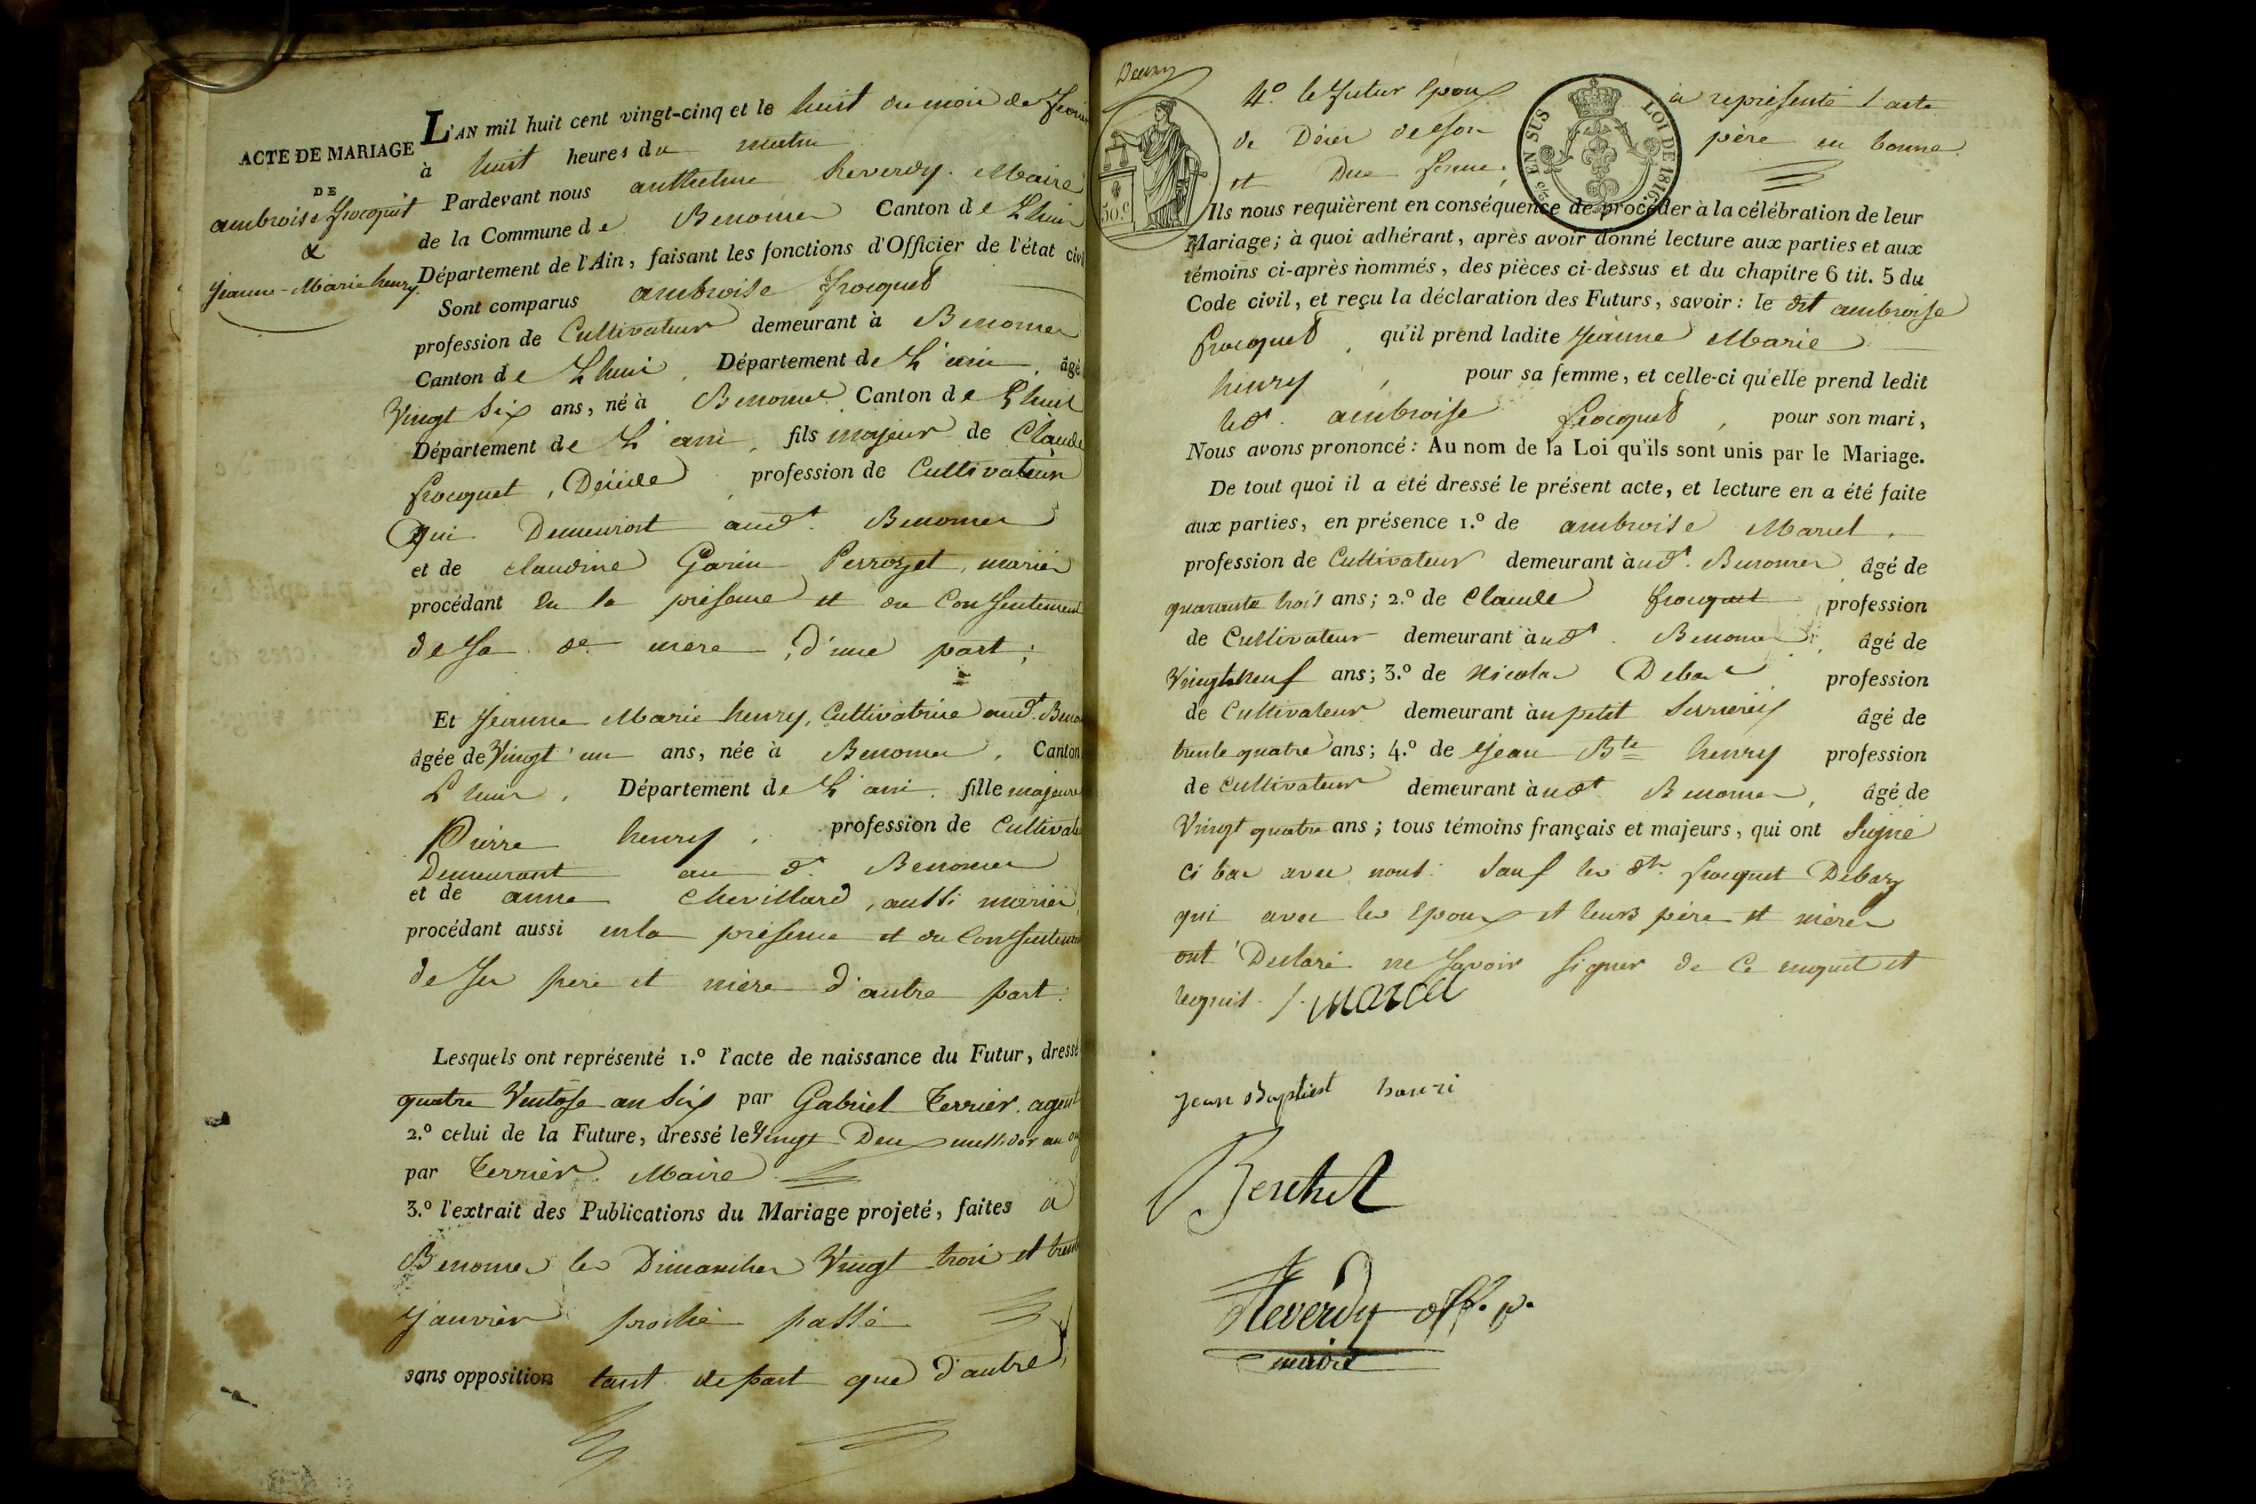 ACTE DE MARIAGE
DE
ambroise frocquet
&
jeanne-Marie henry
L'AN mil huit cent vingt-cinq et le huit du mois de
à huit heures du matin
Pardevant nous anthelme Reverdy Maire
de la Commune de Benonces Canton de Lhuis
Département de l'Ain, faisant les fonctions d'Officier de l'état civil
Sont comparus ambroise frocquet
profession de Cultivateur demeurant à Benonces
Canton de Lhuis, Département de L'ain, âgé
Vingt Six ans, né à Benonces Canton de Lhuis
Département de L'ain, fils majeur de Claude
frocquet, Décédé, profession de Cultivateur
qui Demeuroit aud.t Benonces
et de claudine Garin Perrozet, mariés
procédant En la présence et du Consentement
de Sa de mère, d'une part;
Et Jeanne Marie henry, Cultivatrice aud.t
âgée de Vingt un ans, née à Benonces, Canton
Lhuis, Département de L'ain, fille majeure
Pierre henry, profession de
Demeurant au d.t Benonces
et de anne Chevillard, aussi mariés
procédant aussi en la présence et du Consentement
de Ses père et mère d'autre part.
Lesquels ont représenté 1.º l'acte de naissance du Futur, dressé
quatre Ventôse an Six par Gabriel Terrier agent
2.º celui de la Future, dressé le Vingt Deux messidor an
par Terrier Maire
3.º l'extrait des Publications du Mariage projeté, faites a
Benonces les Dimanches Vingt trois et trente
janvier proche passé
sans opposition tant de part que d'autre
50.c
EN SUS
LOI DE 1816
4.º le futur Epoux a représenté l'acte
de Décès de Son père en bonne
et Due forme.
Ils nous requièrent en conséquence de procéder à la célébration de leur
Mariage; à quoi adhérant, après avoir donné lecture aux parties et aux
témoins ci-après nommés, des pièces ci-dessus et du chapitre 6 tit. 5 du
Code civil, et reçu la déclaration des Futurs, savoir: le dit ambroise
frocquet, qu'il prend ladite Jeanne Marie
henry, pour sa femme, et celle-ci qu'elle prend ledit
led.t ambroise frocquet, pour son mari,
Nous avons prononcé: Au nom de la Loi qu'ils sont unis par le Mariage.
De tout quoi il a été dressé le présent acte, et lecture en a été faite
aux parties, en présence 1.º de ambroise Marcel,
profession de Cultivateur demeurant à ud.t Benonces âgé de
quarante trois ans; 2.º de Claude frocquet profession
de Cultivateur demeurant à ud.t Benonces, âgé de
Vingt neuf ans; 3.º de Nicolas profession
de Cultivateur demeurant à u petit âgé de
trente quatre ans; 4.º de Jean Bte henry profession
de Cultivateur demeurant à ud.t Benonces, âgé de
Vingt quatre ans; tous témoins français et majeurs, qui ont Signé
Ci bas avec nous. Sauf les dts frocquet
qui avec les Epoux et leurs père et mère
ont Declaré ne Savoir Signer de Ce enquit et
requis. marcel
Jean Baptist hanri
Berthet
Reverdy off. p.
maire